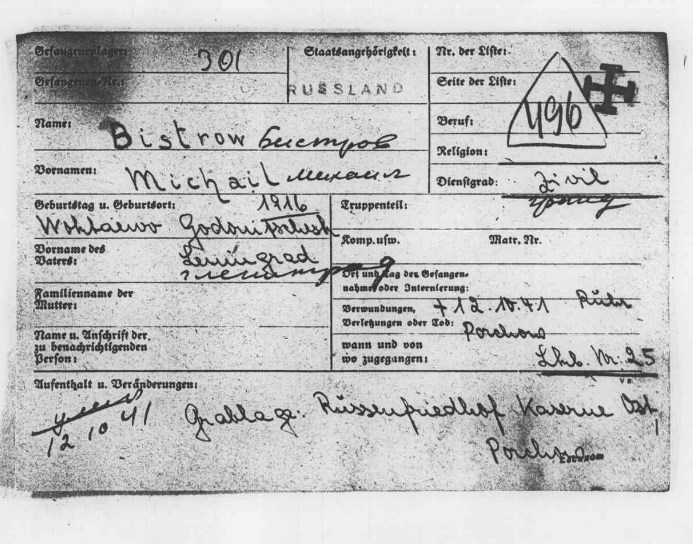 Gefangenenlager: 301
Staatsangehörigkeit: RUSSLAND
Nr. der Liste:
Gefangenen-Nr.:
Seite der Liste:
496
Name: Bistrow Быстров
Beruf:
Vornamen: Michail Михаил
Religion:
Dienstgrad: Zivil
Geburtstag u. Geburtsort: 1916
Truppenteil:
Vorname des
Vaters:
Leningrad
Komp. usw.
Matr. Nr.
Ort und Tag der Gefangen-
nahme oder Internierung:
Familienname der
Mutter:
Verwundungen, + 12.10.41 Ruhr
Verletzungen oder Tod: Porchow
Name u. Anschrift der
zu benachrichtigenden
Person:
wann und von
wo zugegangen:
Lhb. Nr. 25
Aufenthalt u. Veränderungen:
умер
12 10 41
Grablage: Russenfriedhof Kaserne Ost
Porchow